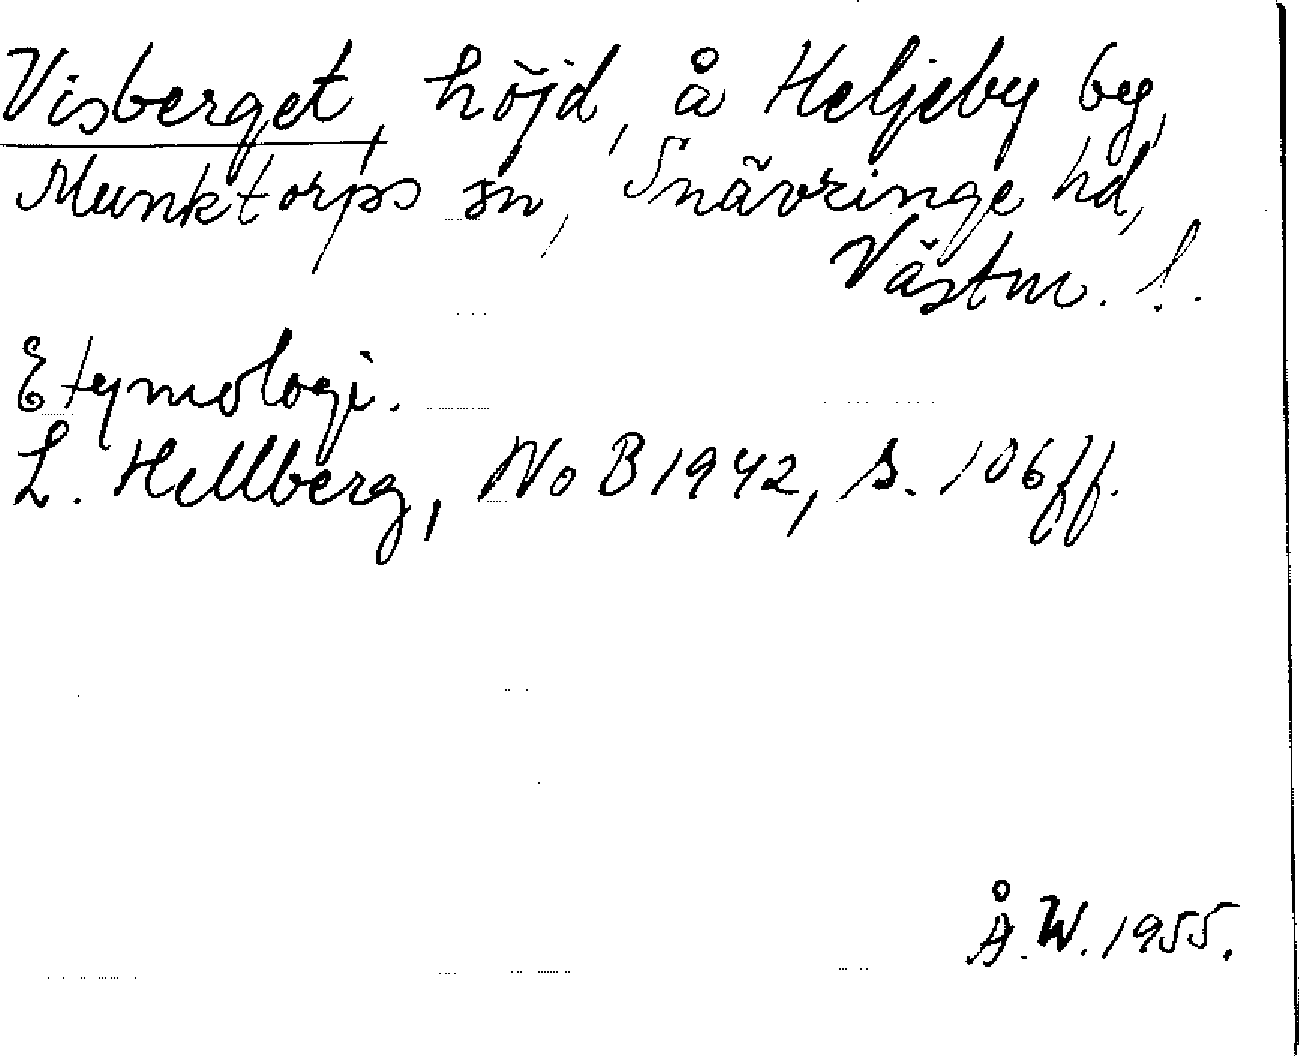 Visberget, höjd, å Heljeby by,
Munktorps sn, Snävringe hd,
Västm. l.
Etymologi.
L. Hellberg, NoB 1942, s. 106 ff.
Å. W. 1955.